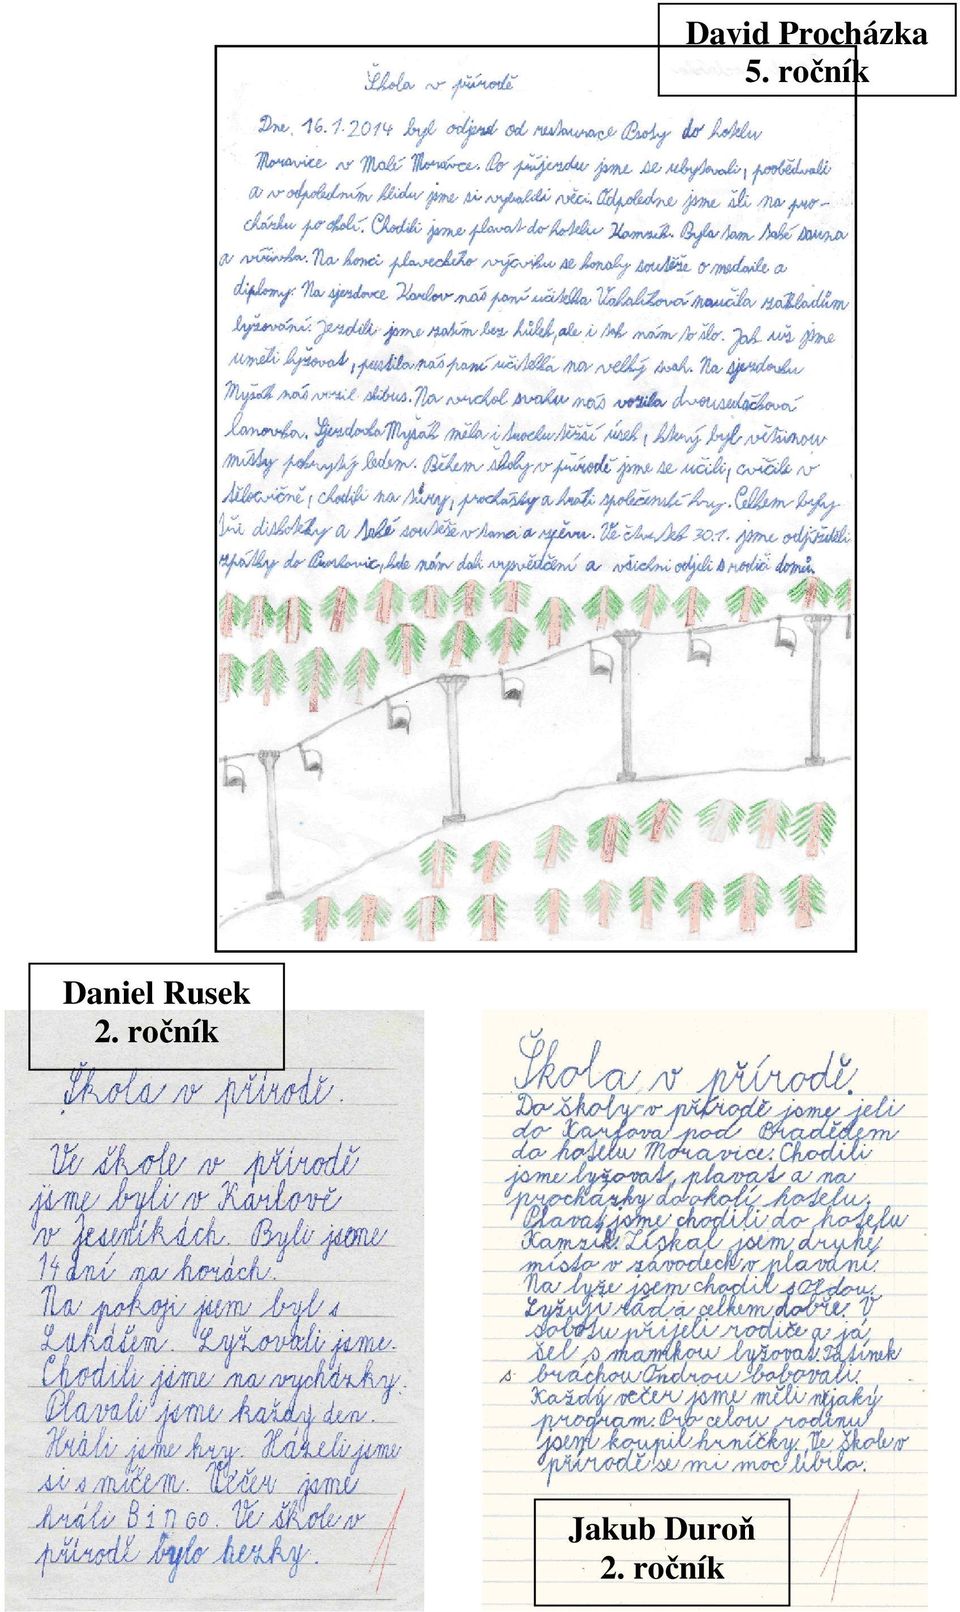 David Procházka
5. ročník
Škola v přírodě
Dne 16.1.2014 byl odjezd od restaurace Bžoty do hotelu
Moravice v Malé Morávce. Po příjezdu jsme se ubytovali, poobědvali
a v odpoledním klidu jsme si vybalili věci. Odpoledne jsme šli na pro-
cházku po okolí. Chodili jsme plavat do hotelu Kamzík. Byla tam také sauna
a vířivka. Na konci plaveckého výcviku se konaly soutěže o medaile a
diplomy. Na sjezdovce Karlov nás paní učitelka naučila základům
lyžování. Jezdili jsme zatím bez hůlek, ale i tak nám to šlo. Jak už jsme
uměli lyžovat, pustila nás paní učitelka na velký svah. Na sjezdovku
Myšák nás vozil skibus. Na vrchol svahu nás vozila dvousedačková
lanovka. Sjezdovka Myšák měla i trochu těžší úsek, který byl většinou
místy pokrytý ledem. Během školy v přírodě jsme se učili, cvičili v
tělocvičně, chodili na túry, procházky a hráli společenské hry. Celkem byly
tři diskotéky a také soutěže v tanci a zpěvu. Ve čtvrtek 30.1. jsme odjížděli
zpátky do kde nám dali vysvědčení a všichni odjeli s rodiči domů.
Daniel Rusek
2. ročník
Škola v přírodě.
Ve škole v přírodě
jsme byli v Karlově
v Jeseníkách. Byli jsme
14 dní na horách.
Na pokoji jsem byl s
Lukášem. Lyžovali jsme.
Chodili jsme na vycházky.
Plavali jsme každý den.
Hráli jsme hry. Házeli jsme
si s míčem. Večer jsme
hráli BINGO. Ve škole v
přírodě bylo hezky.
Škola v přírodě.
Do školy v přírodě jsme jeli
do Karlova pod Pradědem
do hotelu Moravice. Chodili
jsme lyžovat, plavat a na
procházky do okolí hotelu.
Plavat jsme chodili do hotelu
Kamzík. Získal jsem druhé
místo v závodech v plavání.
Na lyže jsem chodil s Oldou.
Lyžuji rád a celkem dobře. V
sobotu přijeli rodiče a já
šel s mamkou lyžovat. Tatínek
s bráchou Ondrou bobovali.
Každý večer jsme měli nějaký
program. Pro celou rodinu
jsem koupil hrníčky. Ve škole v
přírodě se mi moc líbilo.
Jakub Duroň
2. ročník